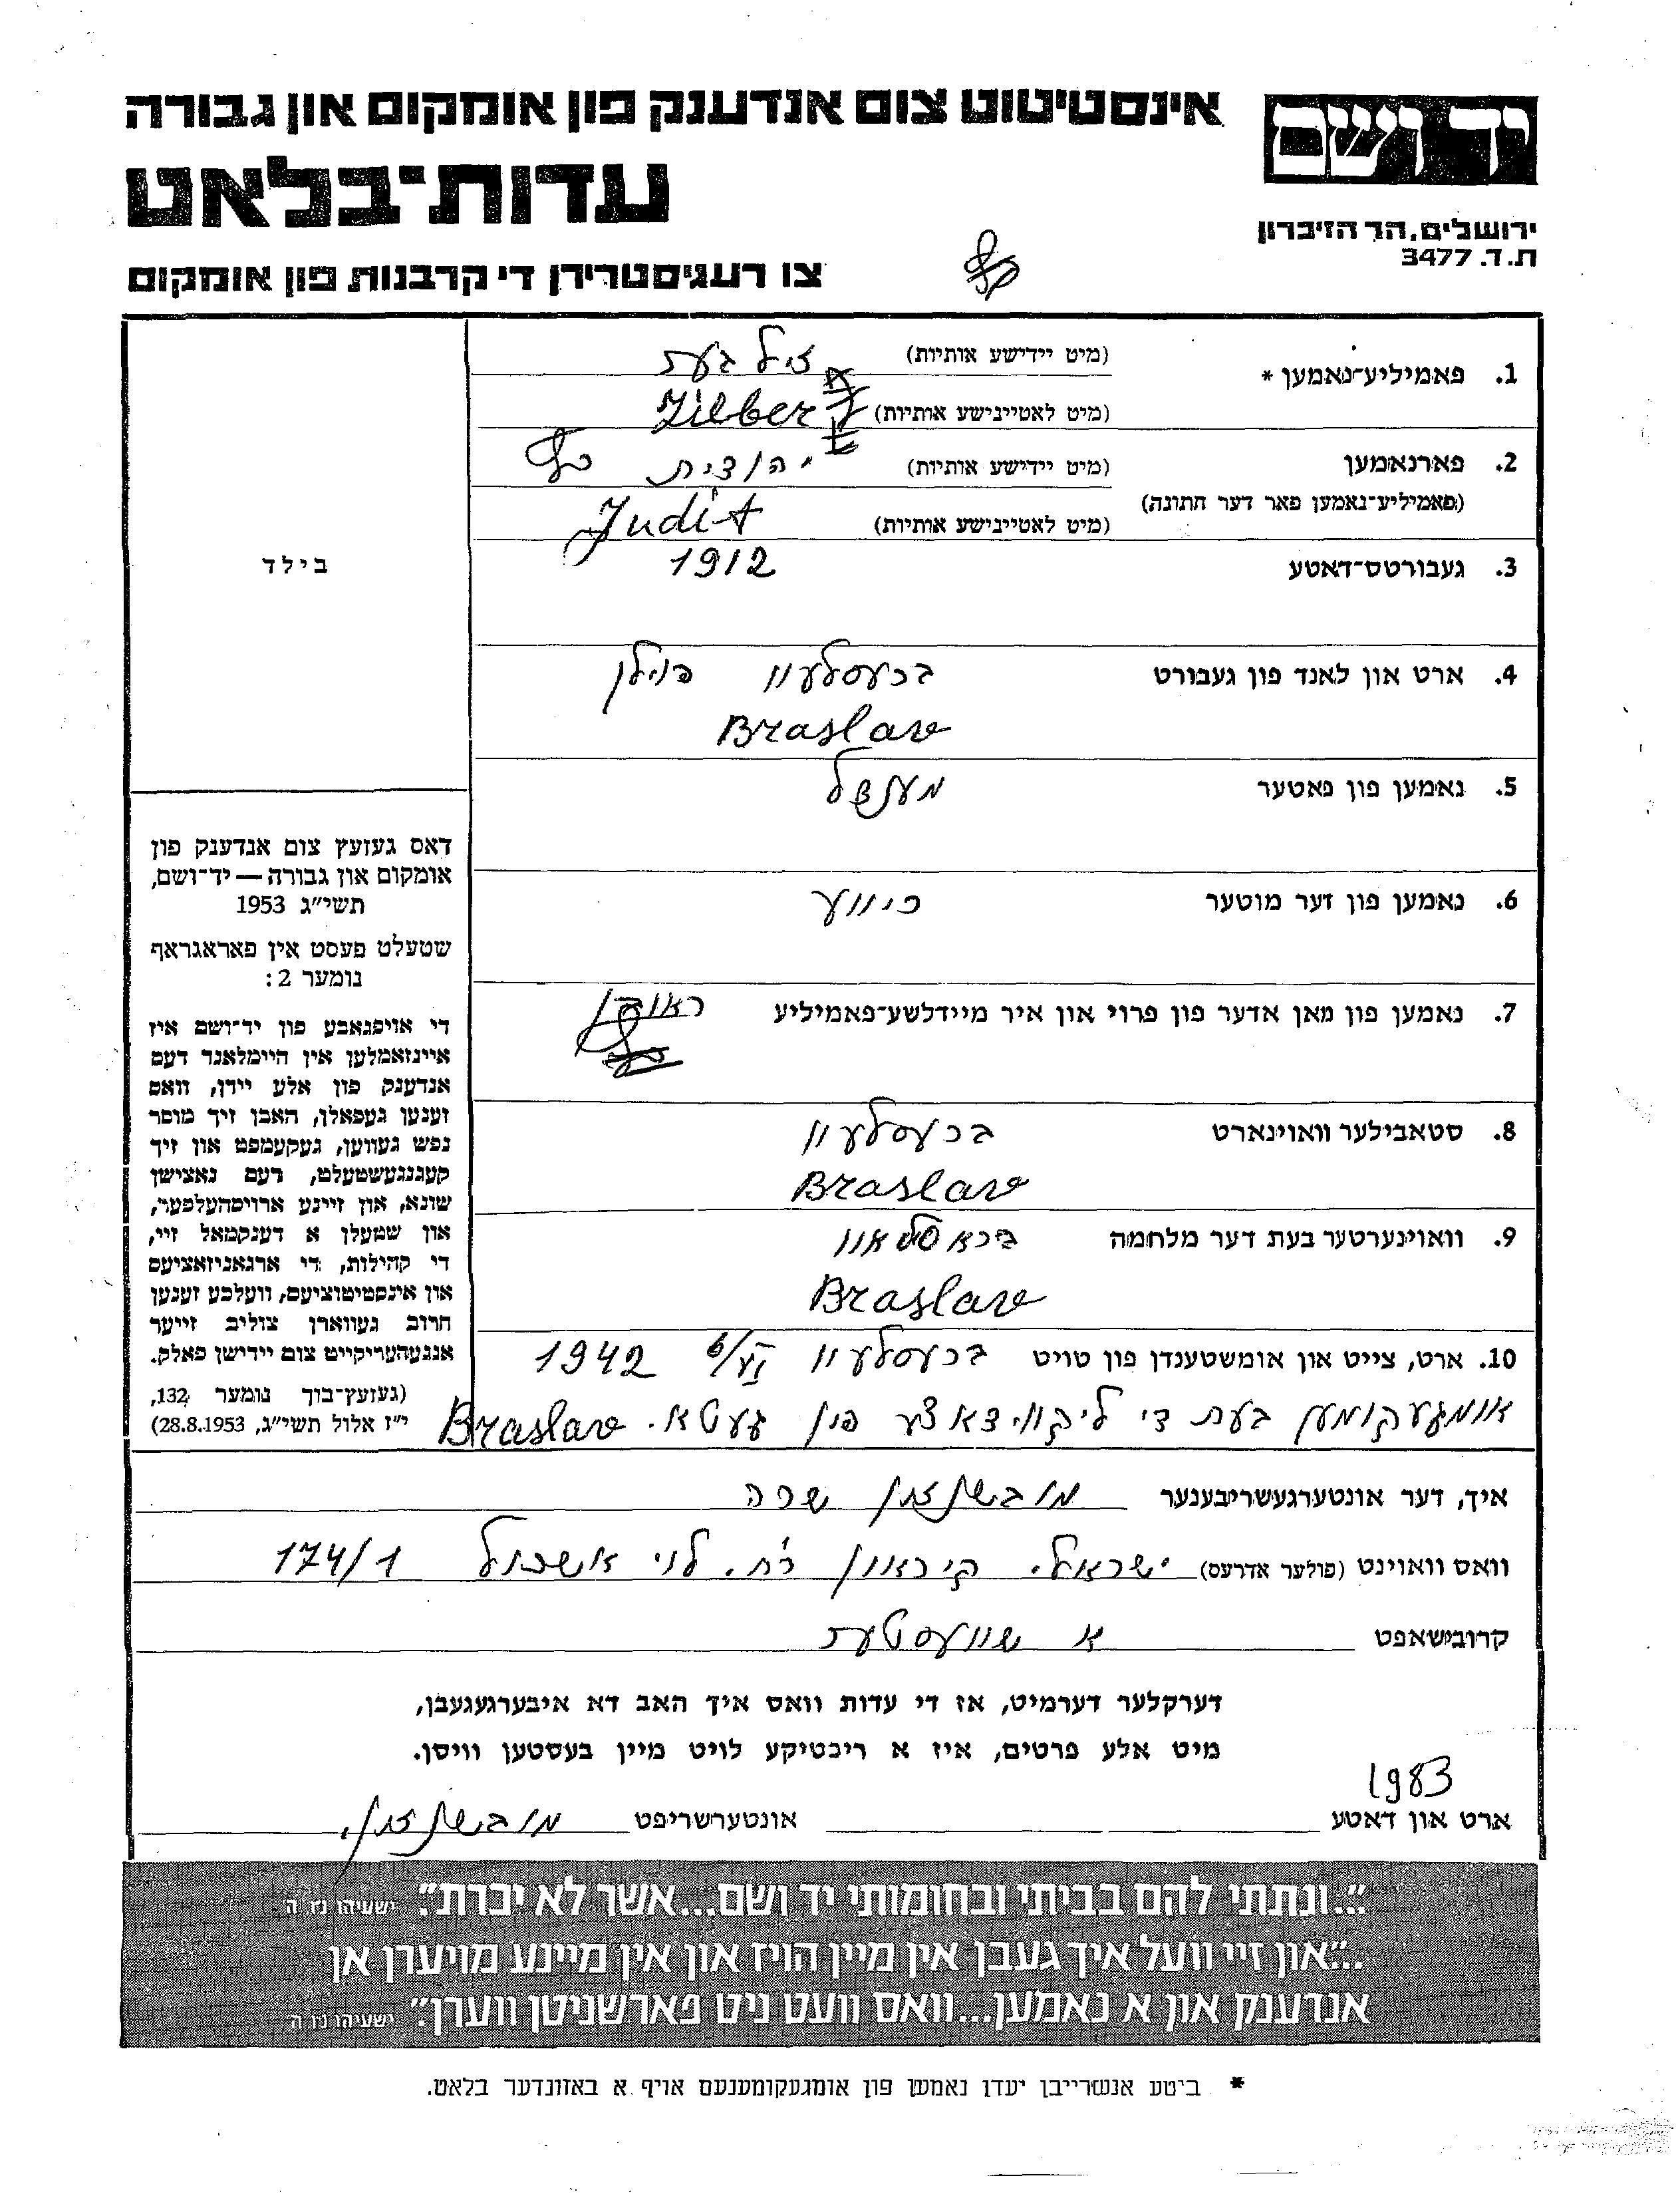 אינסטיטוט צום אנדענק פון אומקום און גבורה
יד ושם
עדות־בלאט
ירושלים, הר הזיכרון
ת.ד. 3477
צו רעגיסטרירן די קרבנות פון אומקום
1. פאמיליע־נאמען * (מיט יידישע אותיות) זילבער
(מיט לאטיינישע אותיות) Zilber
2. פארנאמען (מיט יידישע אותיות) יהודית
(פאמיליע־נאמען פאר דער חתונה) (מיט לאטיינישע אותיות) Judit
3. געבורטס־דאטע 1912
בילד
4. ארט און לאנד פון געבורט ברעסלעוו פוילן
Braslaw
5. נאמען פון פאטער מענדל
6. נאמען פון דער מוטער ריווע
7. נאמען פון מאן אדער פון פרוי און איר מיידלשע־פאמיליע ראובן
8. סטאבילער וווינארט ברעסלעוו
Braslaw
9. וווינערטער בעת דער מלחמה בראסלאוו
Braslaw
10. ארט, צייט און אומשטענדן פון טויט ברעסלעוו 1942
אומגעקומען בעת די ליקווידאציע פון געטא. Braslaw
דאס געזעץ צום אנדענק פון
אומקום און גבורה — יד־ושם,
תשי״ג 1953
שטעלט פעסט אין פאראגראף
נומער 2:
די אויפגאבע פון יד־ושם איז
איינזאמלען אין היימלאנד דעם
אנדענק פון אלע יידן, וואס
זענען געפאלן, האבן זיך מוסר
נפש געווען, געקעמפט און זיך
קעגנגעשטעלט, דעם נאצישן
שונא, און זיינע ארויסהעלפער,
און שטעלן א דענקמאל זיי,
די קהילות, די ארגאניזאציעס
און אינסטיטוציעס, וועלכע זענען
חרוב געווארן צוליב זייער
אנגעהעריקייט צום יידישן פאלק.
(געזעץ־בוך נומער 132,
י״ז אלול תשי״ג, 28.8.1953)
איך, דער אונטערגעשריבענער מובשנזון שרה
וואס וואוינט (פולער אדרעס) ישראל. קי רח. לוי אשכול 174/1
קרובישאפט א שוועסטער
דערקלער דערמיט, אז די עדות וואס איך האב דא איבערגעגעבן,
מיט אלע פרטים, איז א ריכטיקע לויט מיין בעסטען וויסן.
1983
ארט און דאטע אונטערשריפט מובשנזון
״...ונתתי להם בביתי ובחומותי יד ושם...אשר לא יכרת״. ישעיהו נו ה
״...און זיי וועל איך געבן אין מיין הויז און אין מיינע מויערן אן
אנדענק און א נאמען...וואס וועט ניט פארשניטן ווערן״. ישעיהו נו ה
* ביטע אנשרייבן יעדן נאמען פון אומגעקומענעם אויף א באזונדער בלאט.